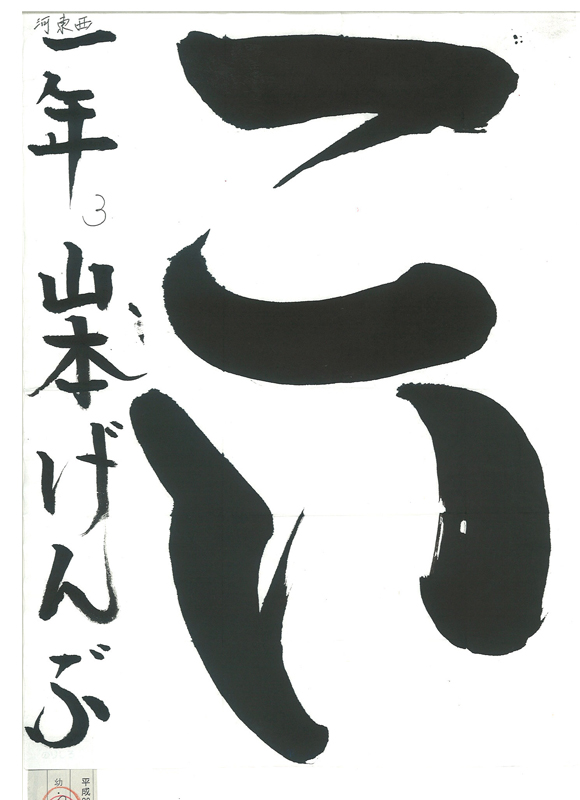 こい
河東西
一年
3
山本げんぶ
平成
幼